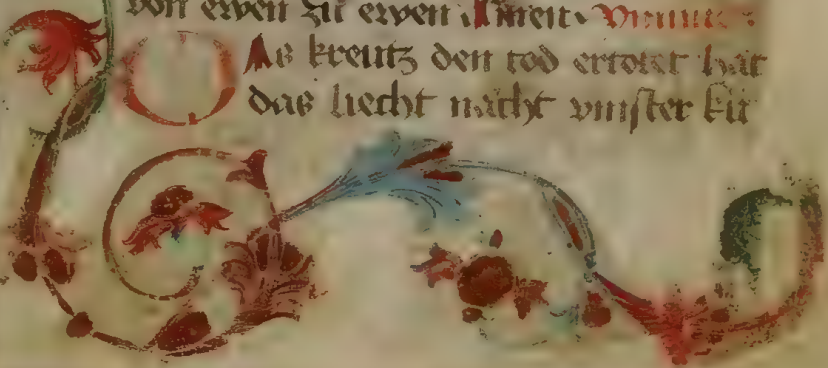 von ewen zu ewen Amen
As kreutz den tod ertotet hat
das liecht macht vinster